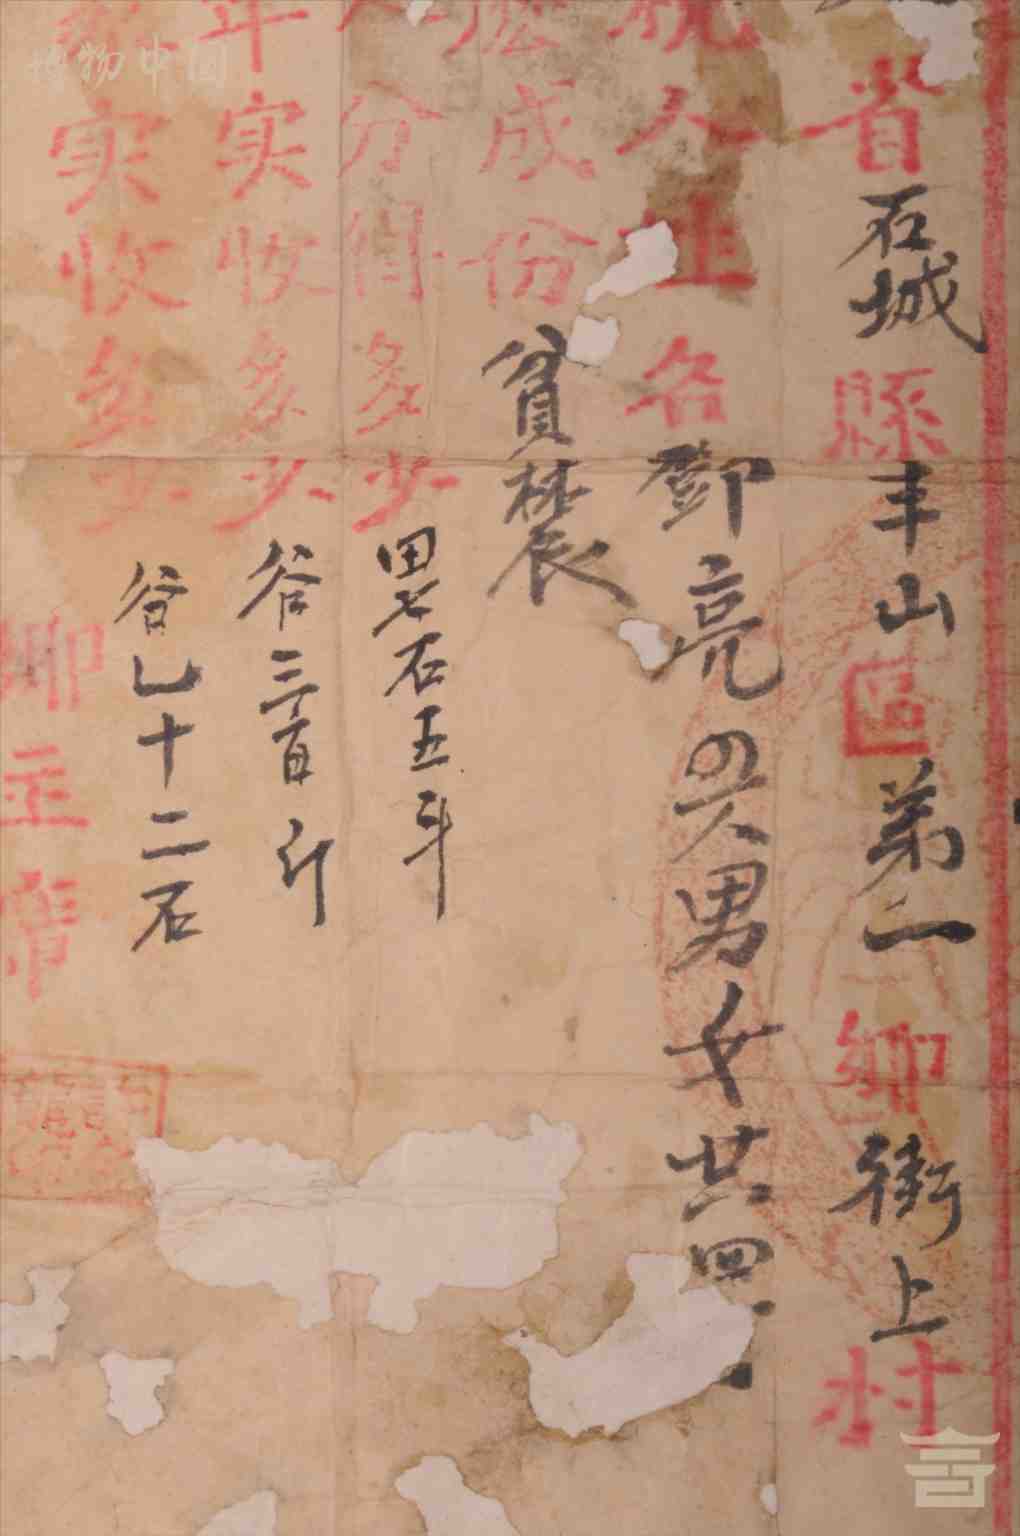 省石城縣丰山區苐二鄉街上村
人姓名鄧亮兴男女共四
成份貧農
分得多少田七石五斗
年实收多少谷三百斤
实收多少谷乚十二石
鄉主席
博物中国